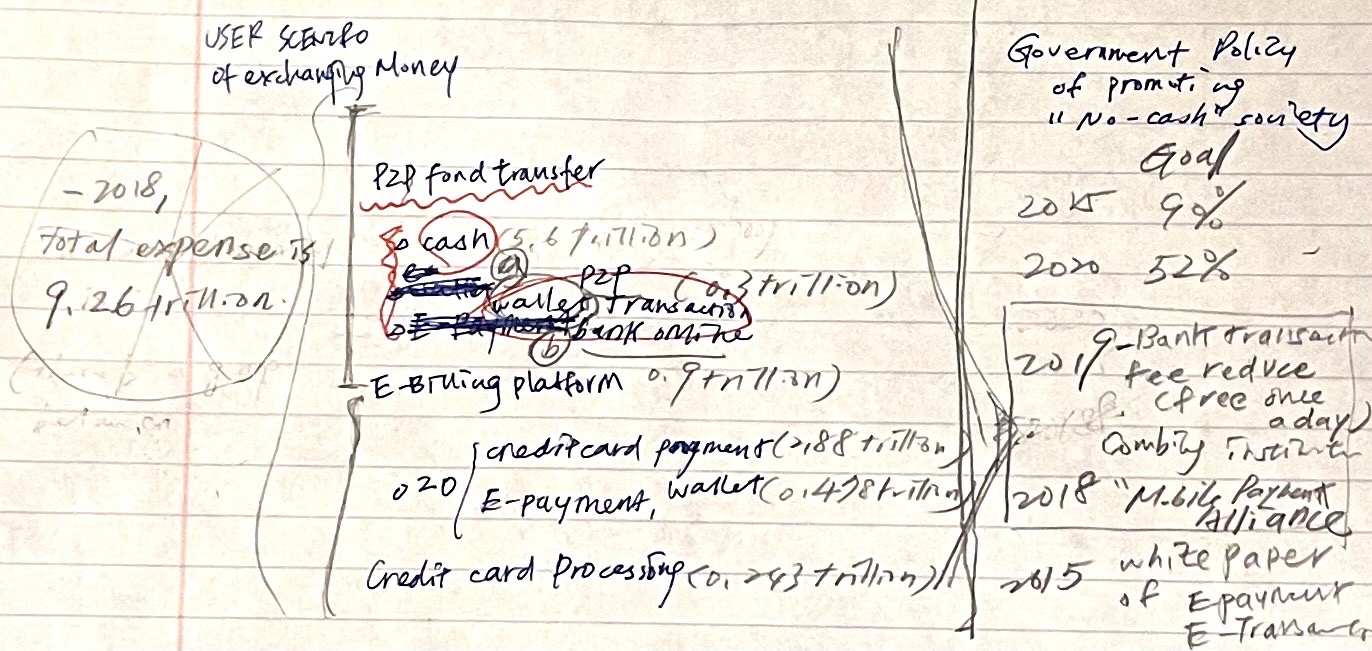 USER SCENIRO
of exchanging Money
- 2018,
total expense is
9.26 trillion.
P2P fond transfer
cash (5.6 trillion)
a
P2P (0.3 trillion)
wallet transaction
bank online
b
E-Billing platform 0.9 trillion)
O2O
credit card payment (2.88 trillion)
E-payment, wallet (0.478 trillion)
Credit card Processing (0.243 trillion)
Government Policy
of promoting
"No-cash" society
Goal
2015 9%
2020 52%
2019 - Bank transact
fee reduce
(free once
a day)
Combing
2018 "Mobile Payment
Alliance
2015 white paper
of Epayment